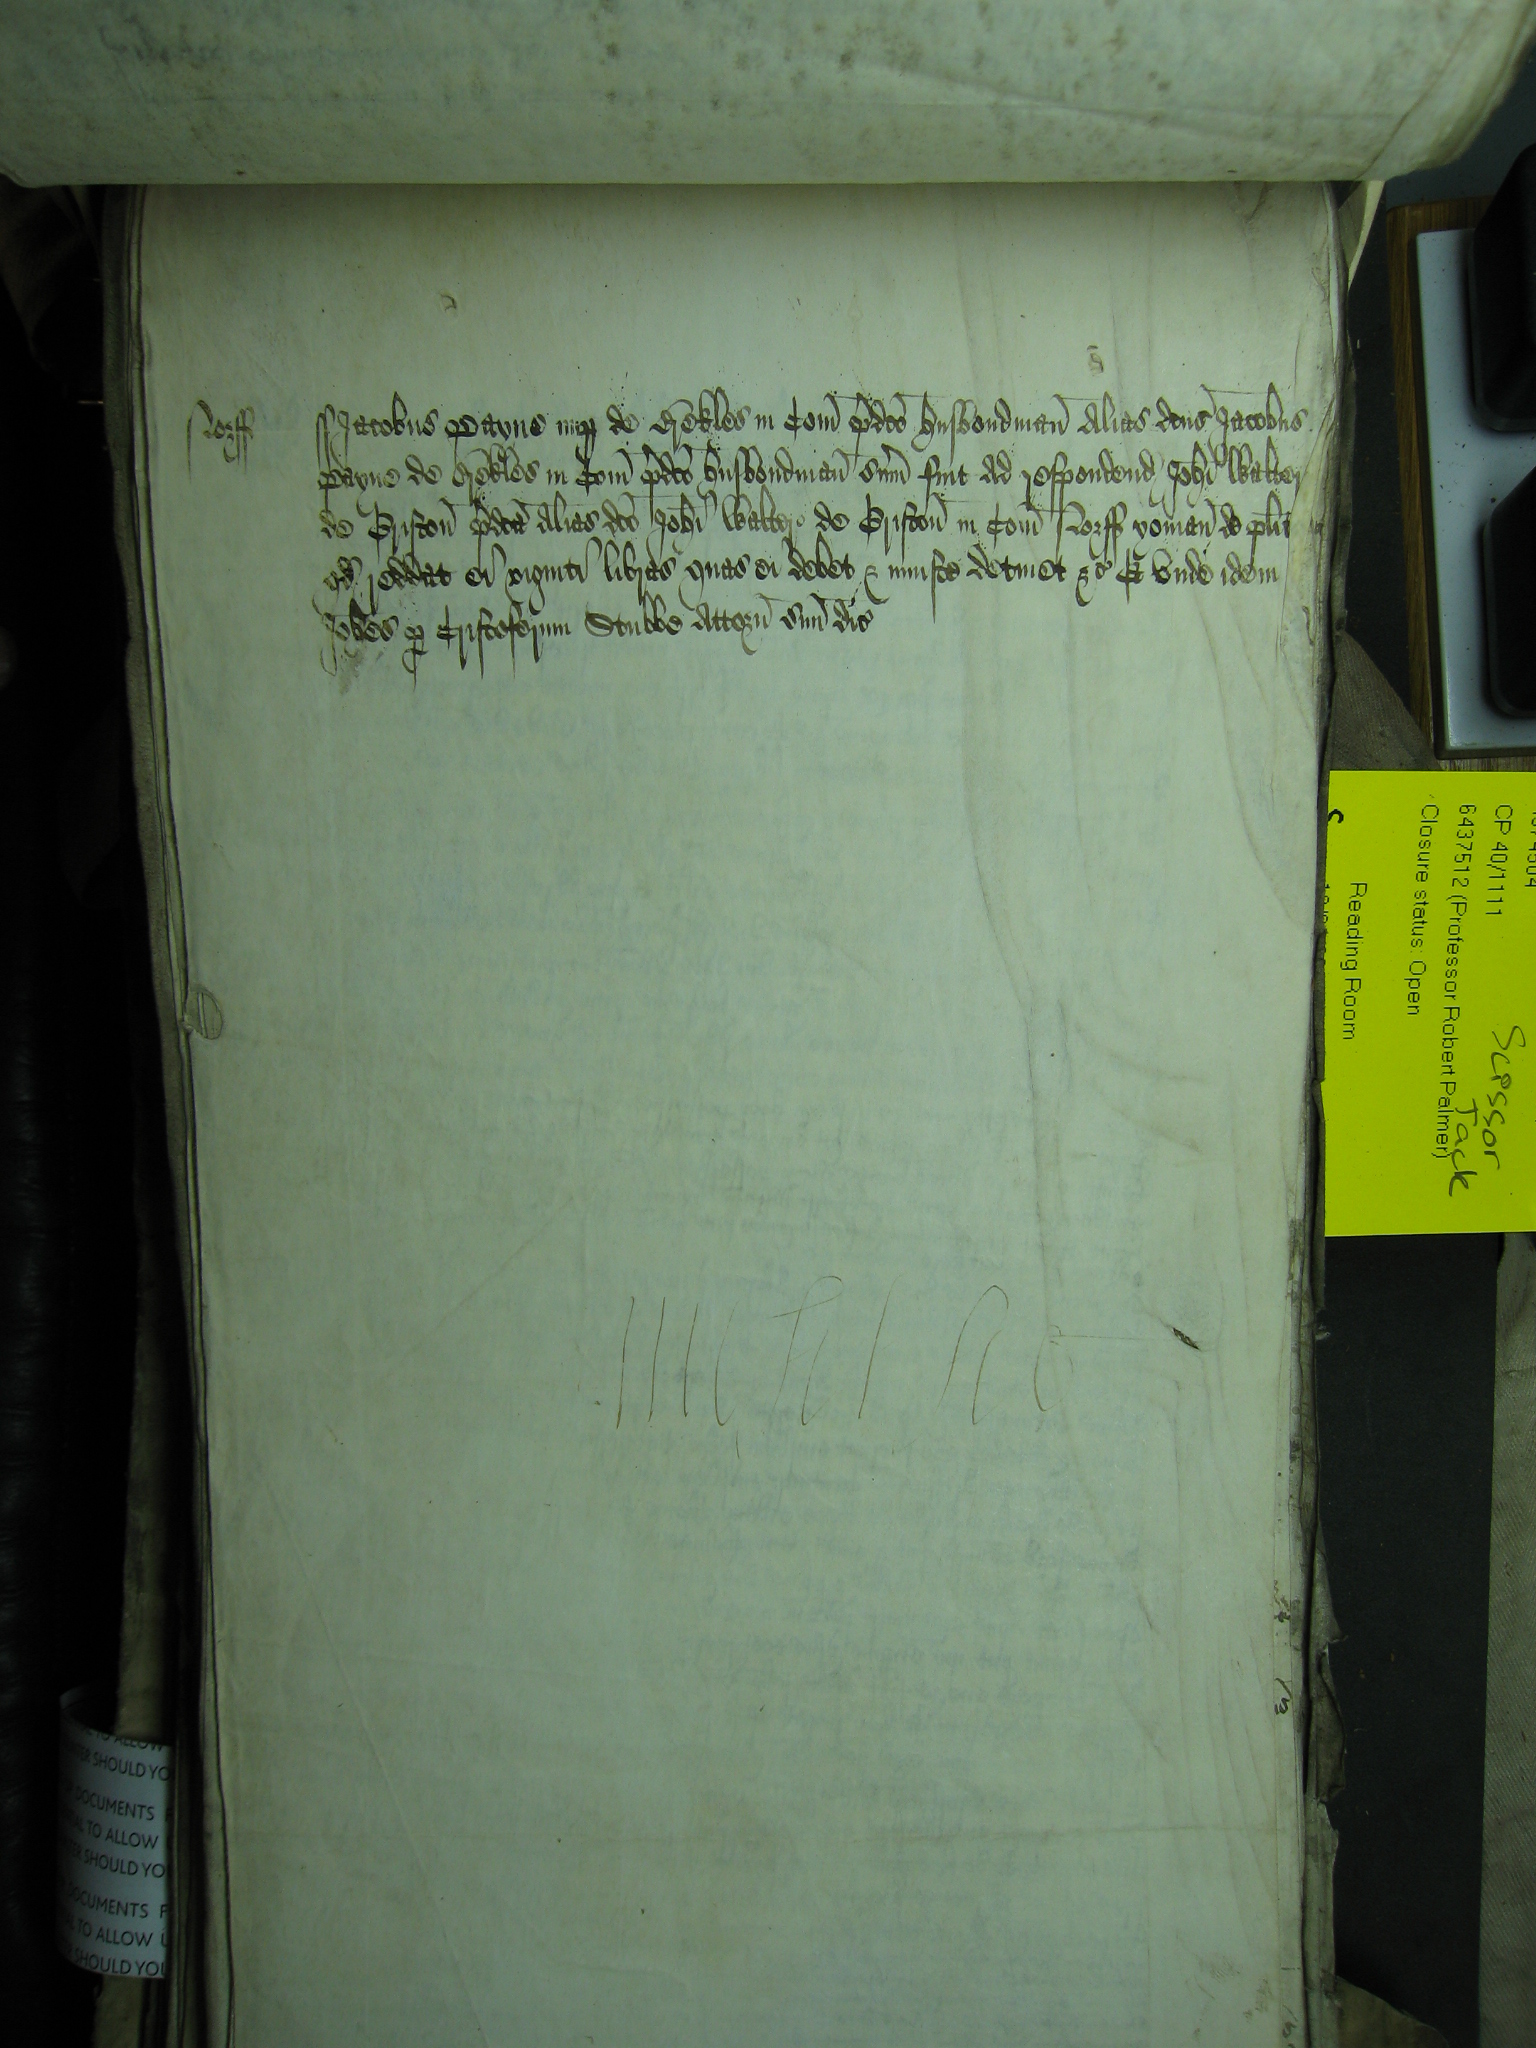 Norff
ss Jacobus Payne nup de Hekles in Com p̄dc̄o husbondman̄ Alias dc̄us Jacobus
Payne de Hekles in Com̄ p̄dc̄o husbondman̄ sum̄ fuit ad respondend Joh̄i Walter
de Griston̄ p̄dc̄a Alias dc̄o Joh̄i Walter de Griston̄ in Com̄ Norff yoman̄ de pli
qd reddat ei viginti libras quas ei debet & iniuste detinet &c Et unde idem
Joh̄es p Cristoferum Stubbe Attorn̄ suū dic̄
CP 40/1111
6437512 (Professor Robert Palmer)
Closure status: Open
Reading Room
Scissor
Jack
TO ALLOW
SHOULD YO
DOCUMENTS F
TO ALLOW
SHOULD YO
DOCUMENTS F
TO ALLOW U
SHOULD YOU